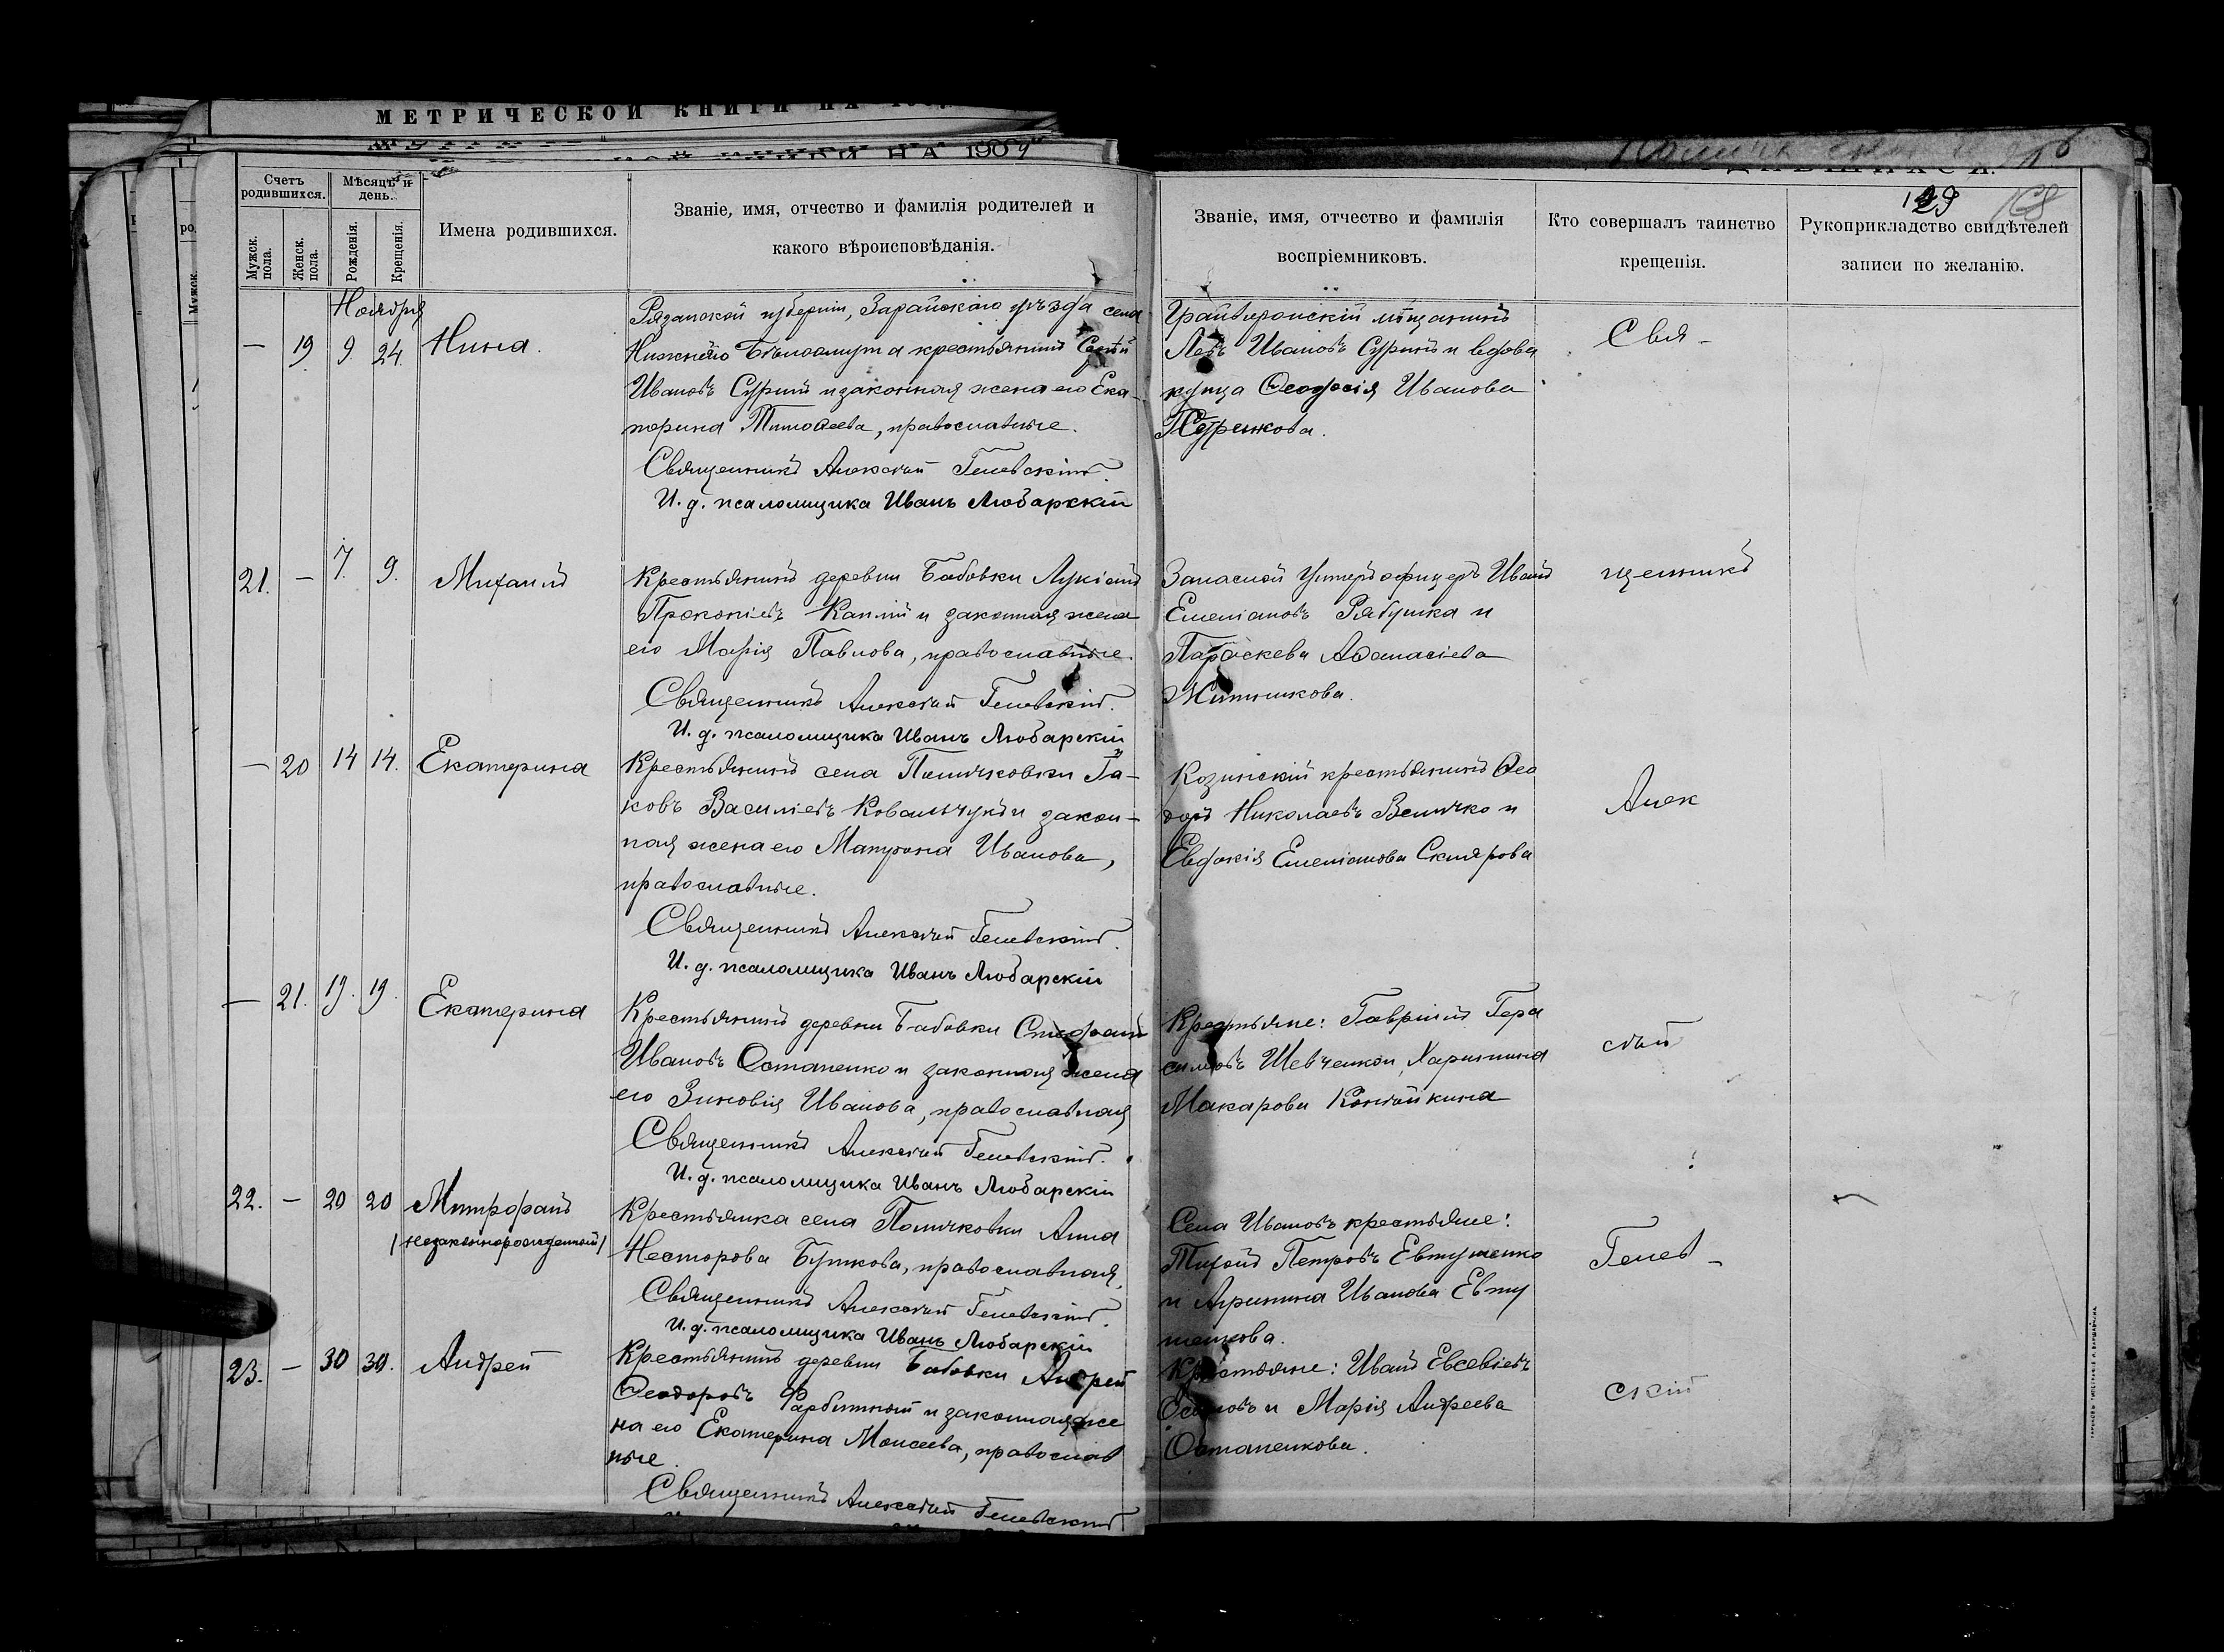 МЕТРИЧЕСКОЙ КНИГИ НА
НА 1909
129
Счетъ родившихся.
Мѣсяцъ и день.
Мужск. пола.
Женск. пола.
Рожденія.
Крещенія.
Имена родившихся.
Званіе, имя, отчество и фамилія родителей и
какого вѣроисповѣданія.
Званіе, имя, отчество и фамилія
воспріемниковъ.
Кто совершалъ таинство
крещенія.
Рукоприкладство свидѣтелей
записи по желанію.
Ноября
— 19 9. 24. Нина.
Рязанской губерніи, Зарайскаго уѣзда села
Нижняго Бѣлоомута крестьянинъ
Ивановъ Суринъ и законная жена его Ека-
терина Тимоѳеева, православные.
Священникъ Алексѣй Гелевскій.
И. д. псаломщика Иванъ Любарскій
мѣщанинъ
Левъ Ивановъ Суринъ и вдова
купца Ѳеодосія Иванова
Свя-
21. — 7. 9. Михаилъ
Крестьянинъ деревни Бабовки Лукіанъ
Прокопіевъ Каплій и законная жена
его Марія Павлова, православные.
Священникъ Алексѣй Гелевскій.
И. д. псаломщика Иванъ Любарскій
Запасной Унтеръ офицеръ Иванъ
Емеліановъ Рябушка и
Параскева Аѳанасіева
Житникова.
щенникъ
— 20 14 14. Екатерина
Крестьянинъ села Поличковки Іа-
ковъ Василіевъ Ковальчукъ и закон-
ная жена его Матрона Иванова,
православные.
Священникъ Алексѣй Гелевскій.
И. д. псаломщика Иванъ Любарскій
Козинскій крестьянинъ Ѳео
доръ Николаевъ Величко и
Евдокія Емеліанова Склярова
Алек
— 21. 19. 19. Екатерина
Крестьянинъ деревни Бабовки Стефанъ
Ивановъ Остапенко и законная жена
его Зиновія Иванова, православная
Священникъ Алексѣй Гелевскій.
И. д. псаломщика Иванъ Любарскій
Крестьяне: Гавріилъ Гера
симовъ Шевченко и Харитина
Макарова
сѣй
22. — 20 20 Митрофанъ
/незаконнорожденный/
Крестьянка села Поличковки Анна
Несторова Буткова, православная.
Священникъ Алексѣй Гелевскій.
И. д. псаломщика Иванъ Любарскій
Села Ивановъ крестьяне:
Тихонъ Петровъ Евтушенко
и Агрипина Иванова Евту
шенкова.
Гелев-
23. — 30 30. Андрей
Крестьянинъ деревни Бабовки Андрей
Ѳеодоровъ и законная же
на его Екатерина Моисеева, православ
ные.
Священникъ Алексѣй Гелевскій
Крестьяне: Иванъ Евсевіевъ
и Марія Андреева
Остапенкова.
скій